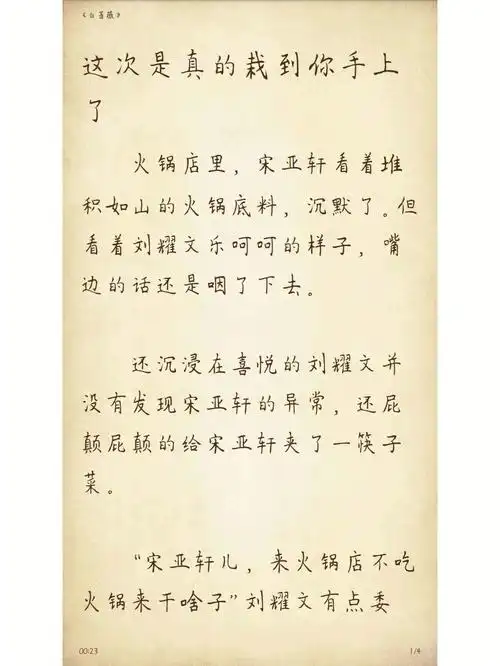 《白蔷薇》
这次是真的栽到你手上
了
火锅店里，宋亚轩看着堆
积如山的火锅底料，沉默了。但
看着刘耀文乐呵呵的样子，嘴
边的话还是咽了下去。
还沉浸在喜悦的刘耀文并
没有发现宋亚轩的异常，还屁
颠屁颠的给宋亚轩夹了一筷子
菜。
“宋亚轩儿，来火锅店不吃
火锅来干啥子”刘耀文有点委
00:23
1/4